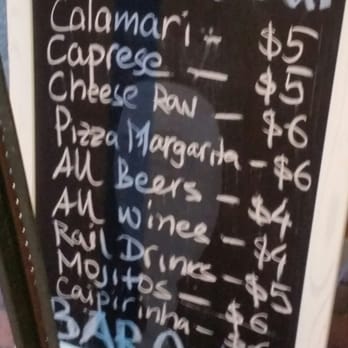 Calamari - $5
Caprese - $5
Cheese Rav - $6
Pizza Margarita - $6
All Beers - $4
All wines - $4
Rail Drinks - $5
Mojitos - $6
Caipirinha -
BAR